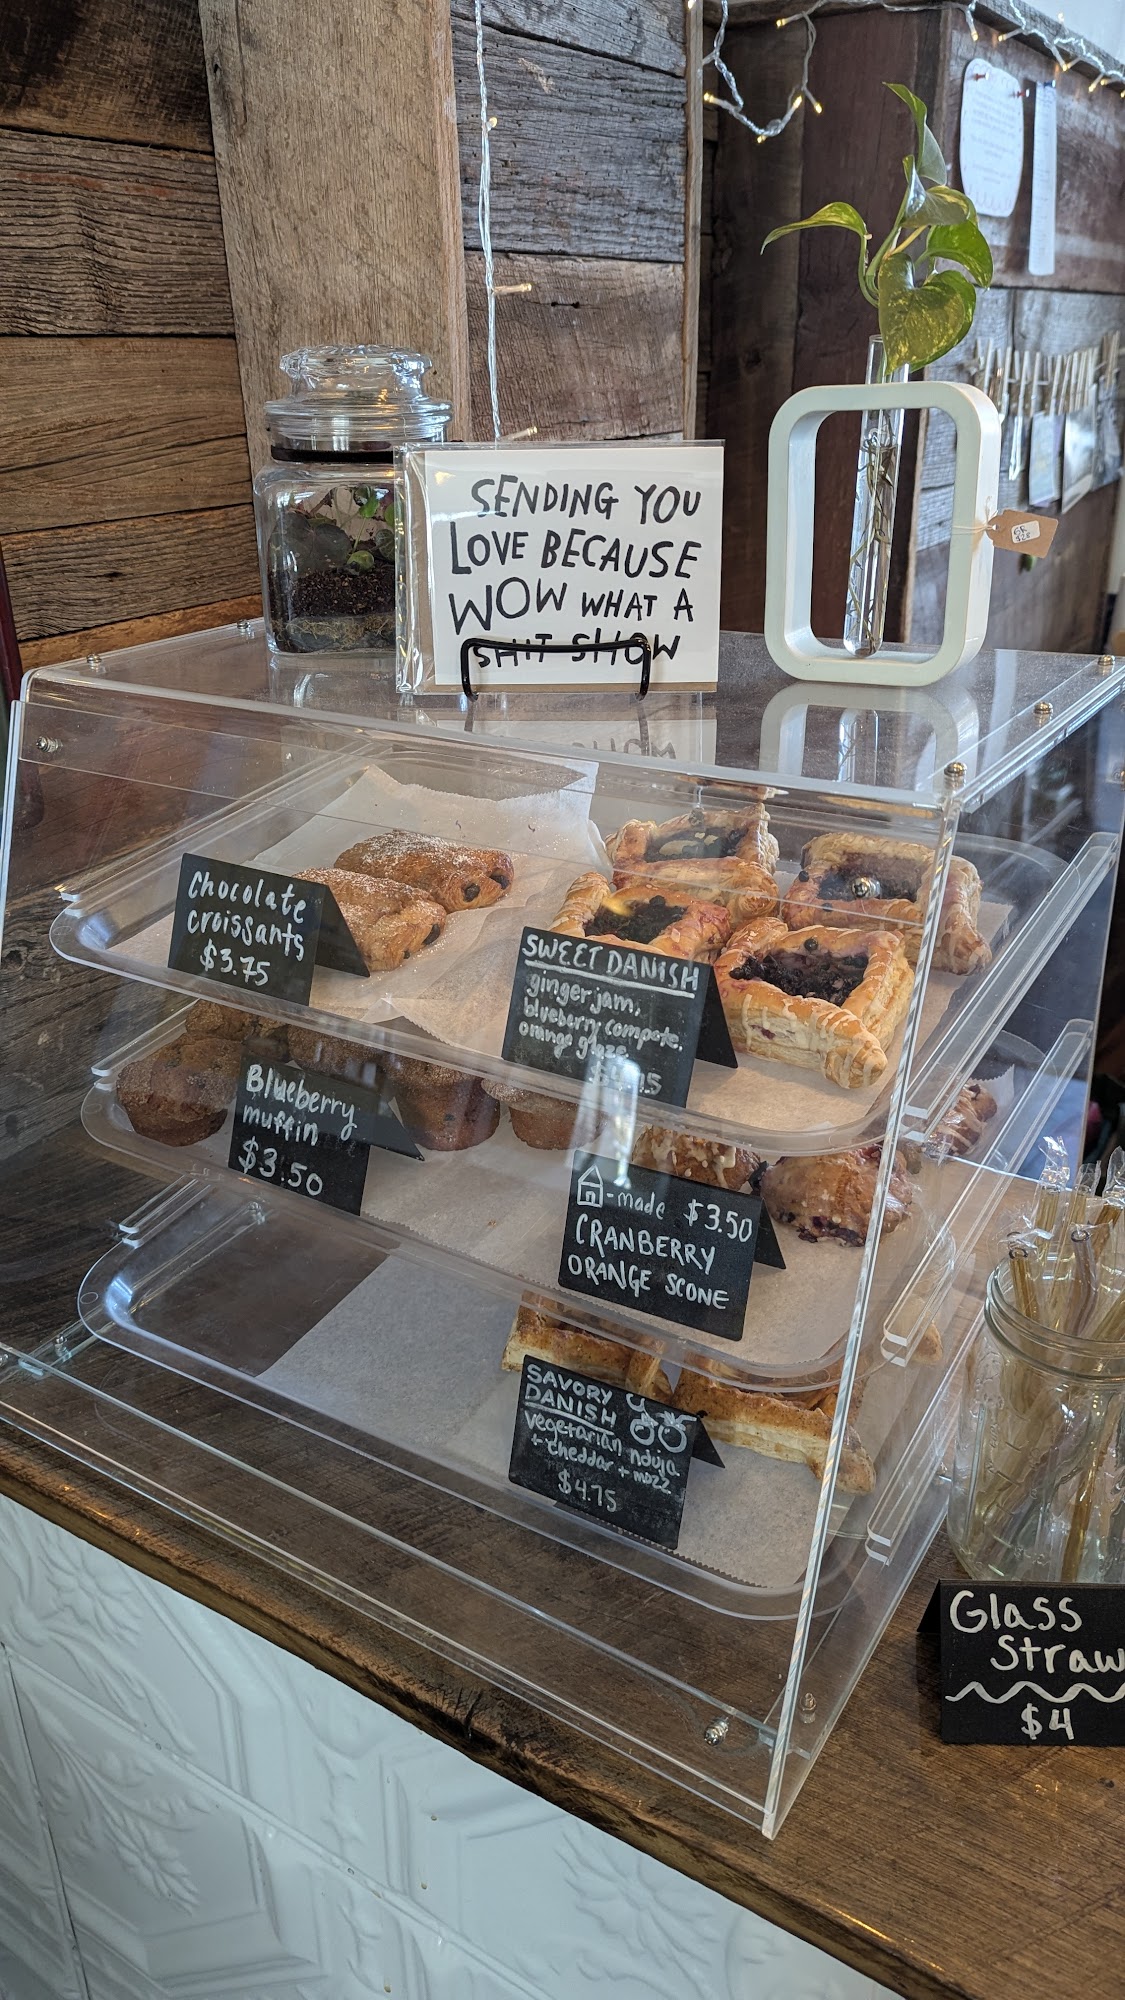 SENDING YOU
LOVE BECAUSE
WOW WHAT A
SHIT SHOW
Chocolate
croissants
$3.75
SWEET DANISH
ginger jam,
blueberry compote,
orange glaze
Blueberry
muffin
$3.50
-made $3.50
CRANBERRY
ORANGE SCONE
SAVORY
DANISH
vegetarian nduja
+ cheddar + mozz
$4.75
Glass
Straw
$4